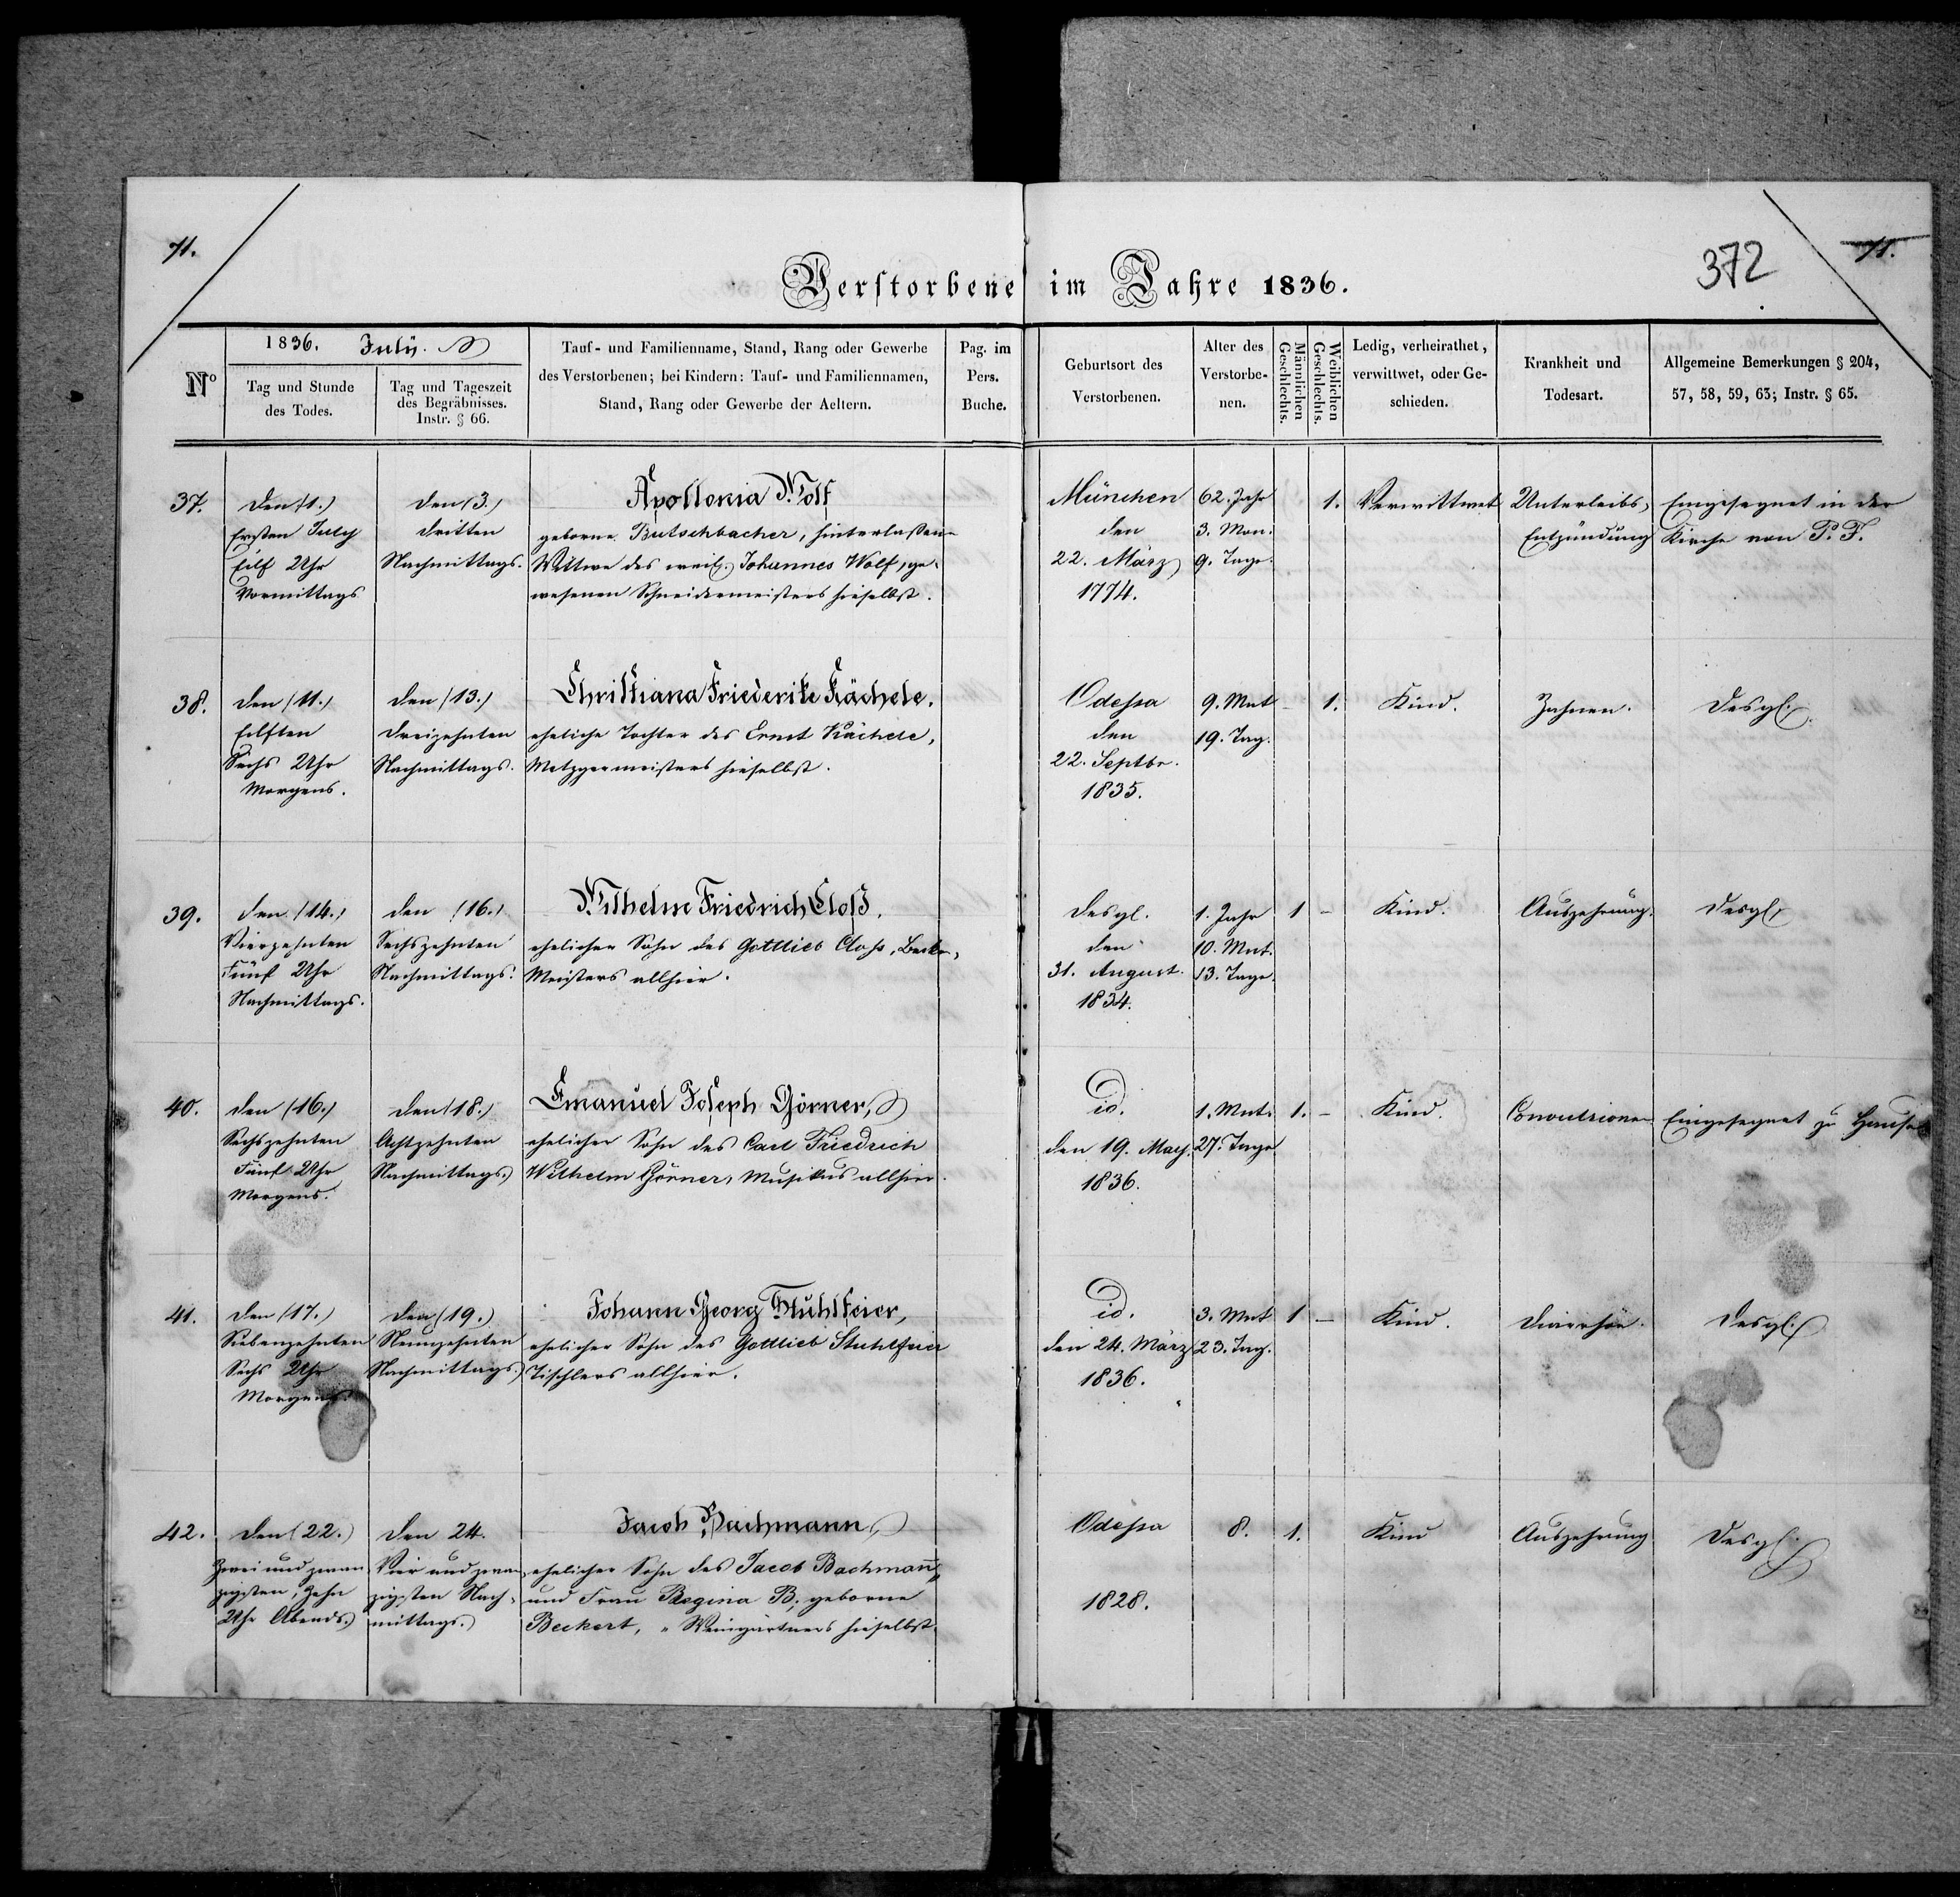 71.
71.
372
Verstorbene im Jahre 1836.
Nº
1836. July.
Tag und Stunde
des Todes.
Tag und Tageszeit
des Begräbnisses.
Instr. § 66.
Tauf- und Familienname, Stand, Rang oder Gewerbe
des Verstorbenen; bei Kindern: Tauf- und Familiennamen,
Stand, Rang oder Gewerbe der Aeltern.
Pag. im
Pers.
Buche.
Geburtsort des
Verstorbenen.
Alter des
Verstorbe-
nen.
Männlichen
Geschlechts.
Weiblichen
Geschlechts.
Ledig, verheirathet,
verwittwet, oder Ge-
schieden.
Krankheit und
Todesart.
Allgemeine Bemerkungen § 204,
57, 58, 59, 63; Instr. § 65.
37.
den (1.)
Ersten July
Eilf Uhr
Vormittags
den (3.)
dritten
Nachmittags.
Apollonia Wolf
geborne Butschbacher, hinterlaßene
Wittwe des weil. Johannes Wolf, ge-
wesenen Schneidermeisters hieselbst.
München
den
22. März
1774.
62. Jahr
3. Mon.
9. Tage.
1.
Verwittwet
Unterleibs-
Entzündung
Eingesegnet in der
Kirche von P. F.
38.
den (11.)
Eilften
Sechs Uhr
Morgens.
den (13.)
dreizehnten
Nachmittags.
Christiana Friederike Kächele.
eheliche Tochter des Ernst Kächele,
Metzgermeisters hieselbst.
Odessa
den
22. Septbr.
1835.
9. Mnt
19. Tag.
– 1.
Kind.
Zahnen.
Desgl.
39.
den (14.)
Vierzehnten
Fünf Uhr
Nachmittags.
den (16.)
Sechszehnten
Nachmittags.
Wilhelm Friedrich Cloß.
ehelicher Sohn des Gottlieb Closs, Becker-
Meisters allhier.
Desgl.
den
31. August.
1834.
1. Jahr
10. Mnt.
13. Tage.
1 –
Kind.
Auszehrung.
Desgl.
40.
den (16.)
Sechszehnten
Fünf Uhr
Morgens.
den (18.)
Achtzehnten
Nachmittags.
Emanuel Joseph Görner,
ehelicher Sohn des Carl Friedrich
Wilhelm Görner, Musikus allhier.
id.
den 19. May.
1836.
1. Mnt.
27. Tage
1. –
Kind.
Convulsionen
Eingesegnet zu Hause
41.
den (17.)
Siebenzehnten
Sechs Uhr
Morgens.
den (19.)
Neunzehnten
Nachmittags.
Johann Georg Stuhlfeier,
ehelicher Sohn des Gottlieb Stuhlfeier
Tischlers allhier.
id.
den 24. März
1836.
3. Mnt
23. Tag.
1 –
Kind.
Diarrhöe.
Desgl.
42.
den (22.)
Zwei und zwan
zigsten, Zehn
Uhr Abends.
den 24.
Vier und zwan
zigsten Nach-
mittags.
Jacob Bachmann,
ehelicher Sohn des Jacob Bachmañ,
und Frau Regina B., geborne
Beckert, " Weingärtners hieselbst.
Odessa
1828.
8.
1.
Kind
Auszehrung
Desgl.